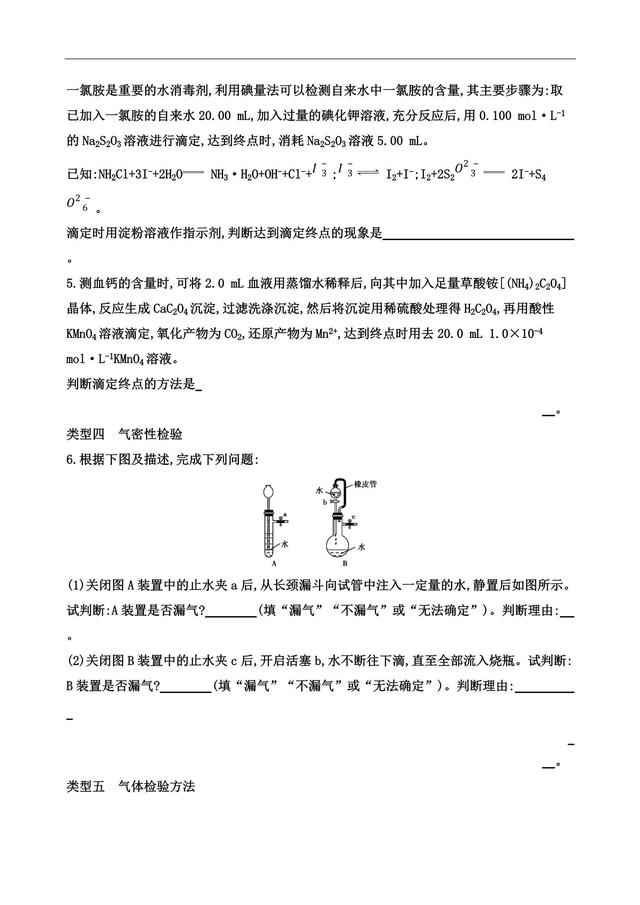 一氯胺是重要的水消毒剂,利用碘量法可以检测自来水中一氯胺的含量,其主要步骤为:取
已加入一氯胺的自来水 20.00 mL,加入过量的碘化钾溶液,充分反应后,用 0.100 mol·L⁻¹
的 Na₂S₂O₃ 溶液进行滴定,达到终点时,消耗 Na₂S₂O₃ 溶液 5.00 mL。
已知:NH₂Cl+3I⁻+2H₂O══ NH₃·H₂O+OH⁻+Cl⁻+I₃⁻;I₃⁻⇌ I₂+I⁻;I₂+2S₂O₃²⁻══ 2I⁻+S₄
O₆²⁻。
滴定时用淀粉溶液作指示剂,判断达到滴定终点的现象是____________________
。
5.测血钙的含量时,可将 2.0 mL 血液用蒸馏水稀释后,向其中加入足量草酸铵[(NH₄)₂C₂O₄]
晶体,反应生成 CaC₂O₄ 沉淀,过滤洗涤沉淀,然后将沉淀用稀硫酸处理得 H₂C₂O₄,再用酸性
KMnO₄ 溶液滴定,氧化产物为 CO₂,还原产物为 Mn²⁺,达到终点时用去 20.0 mL 1.0×10⁻⁴
mol·L⁻¹KMnO₄ 溶液。
判断滴定终点的方法是_
__。
类型四 气密性检验
6.根据下图及描述,完成下列问题:
橡皮管
水
b
a
c
水
水
A
B
(1)关闭图 A 装置中的止水夹 a 后,从长颈漏斗向试管中注入一定量的水,静置后如图所示。
试判断:A 装置是否漏气?________(填“漏气”“不漏气”或“无法确定”)。判断理由:__
。
(2)关闭图 B 装置中的止水夹 c 后,开启活塞 b,水不断往下滴,直至全部流入烧瓶。试判断:
B 装置是否漏气?________(填“漏气”“不漏气”或“无法确定”)。判断理由:_________
_
_
__。
类型五 气体检验方法